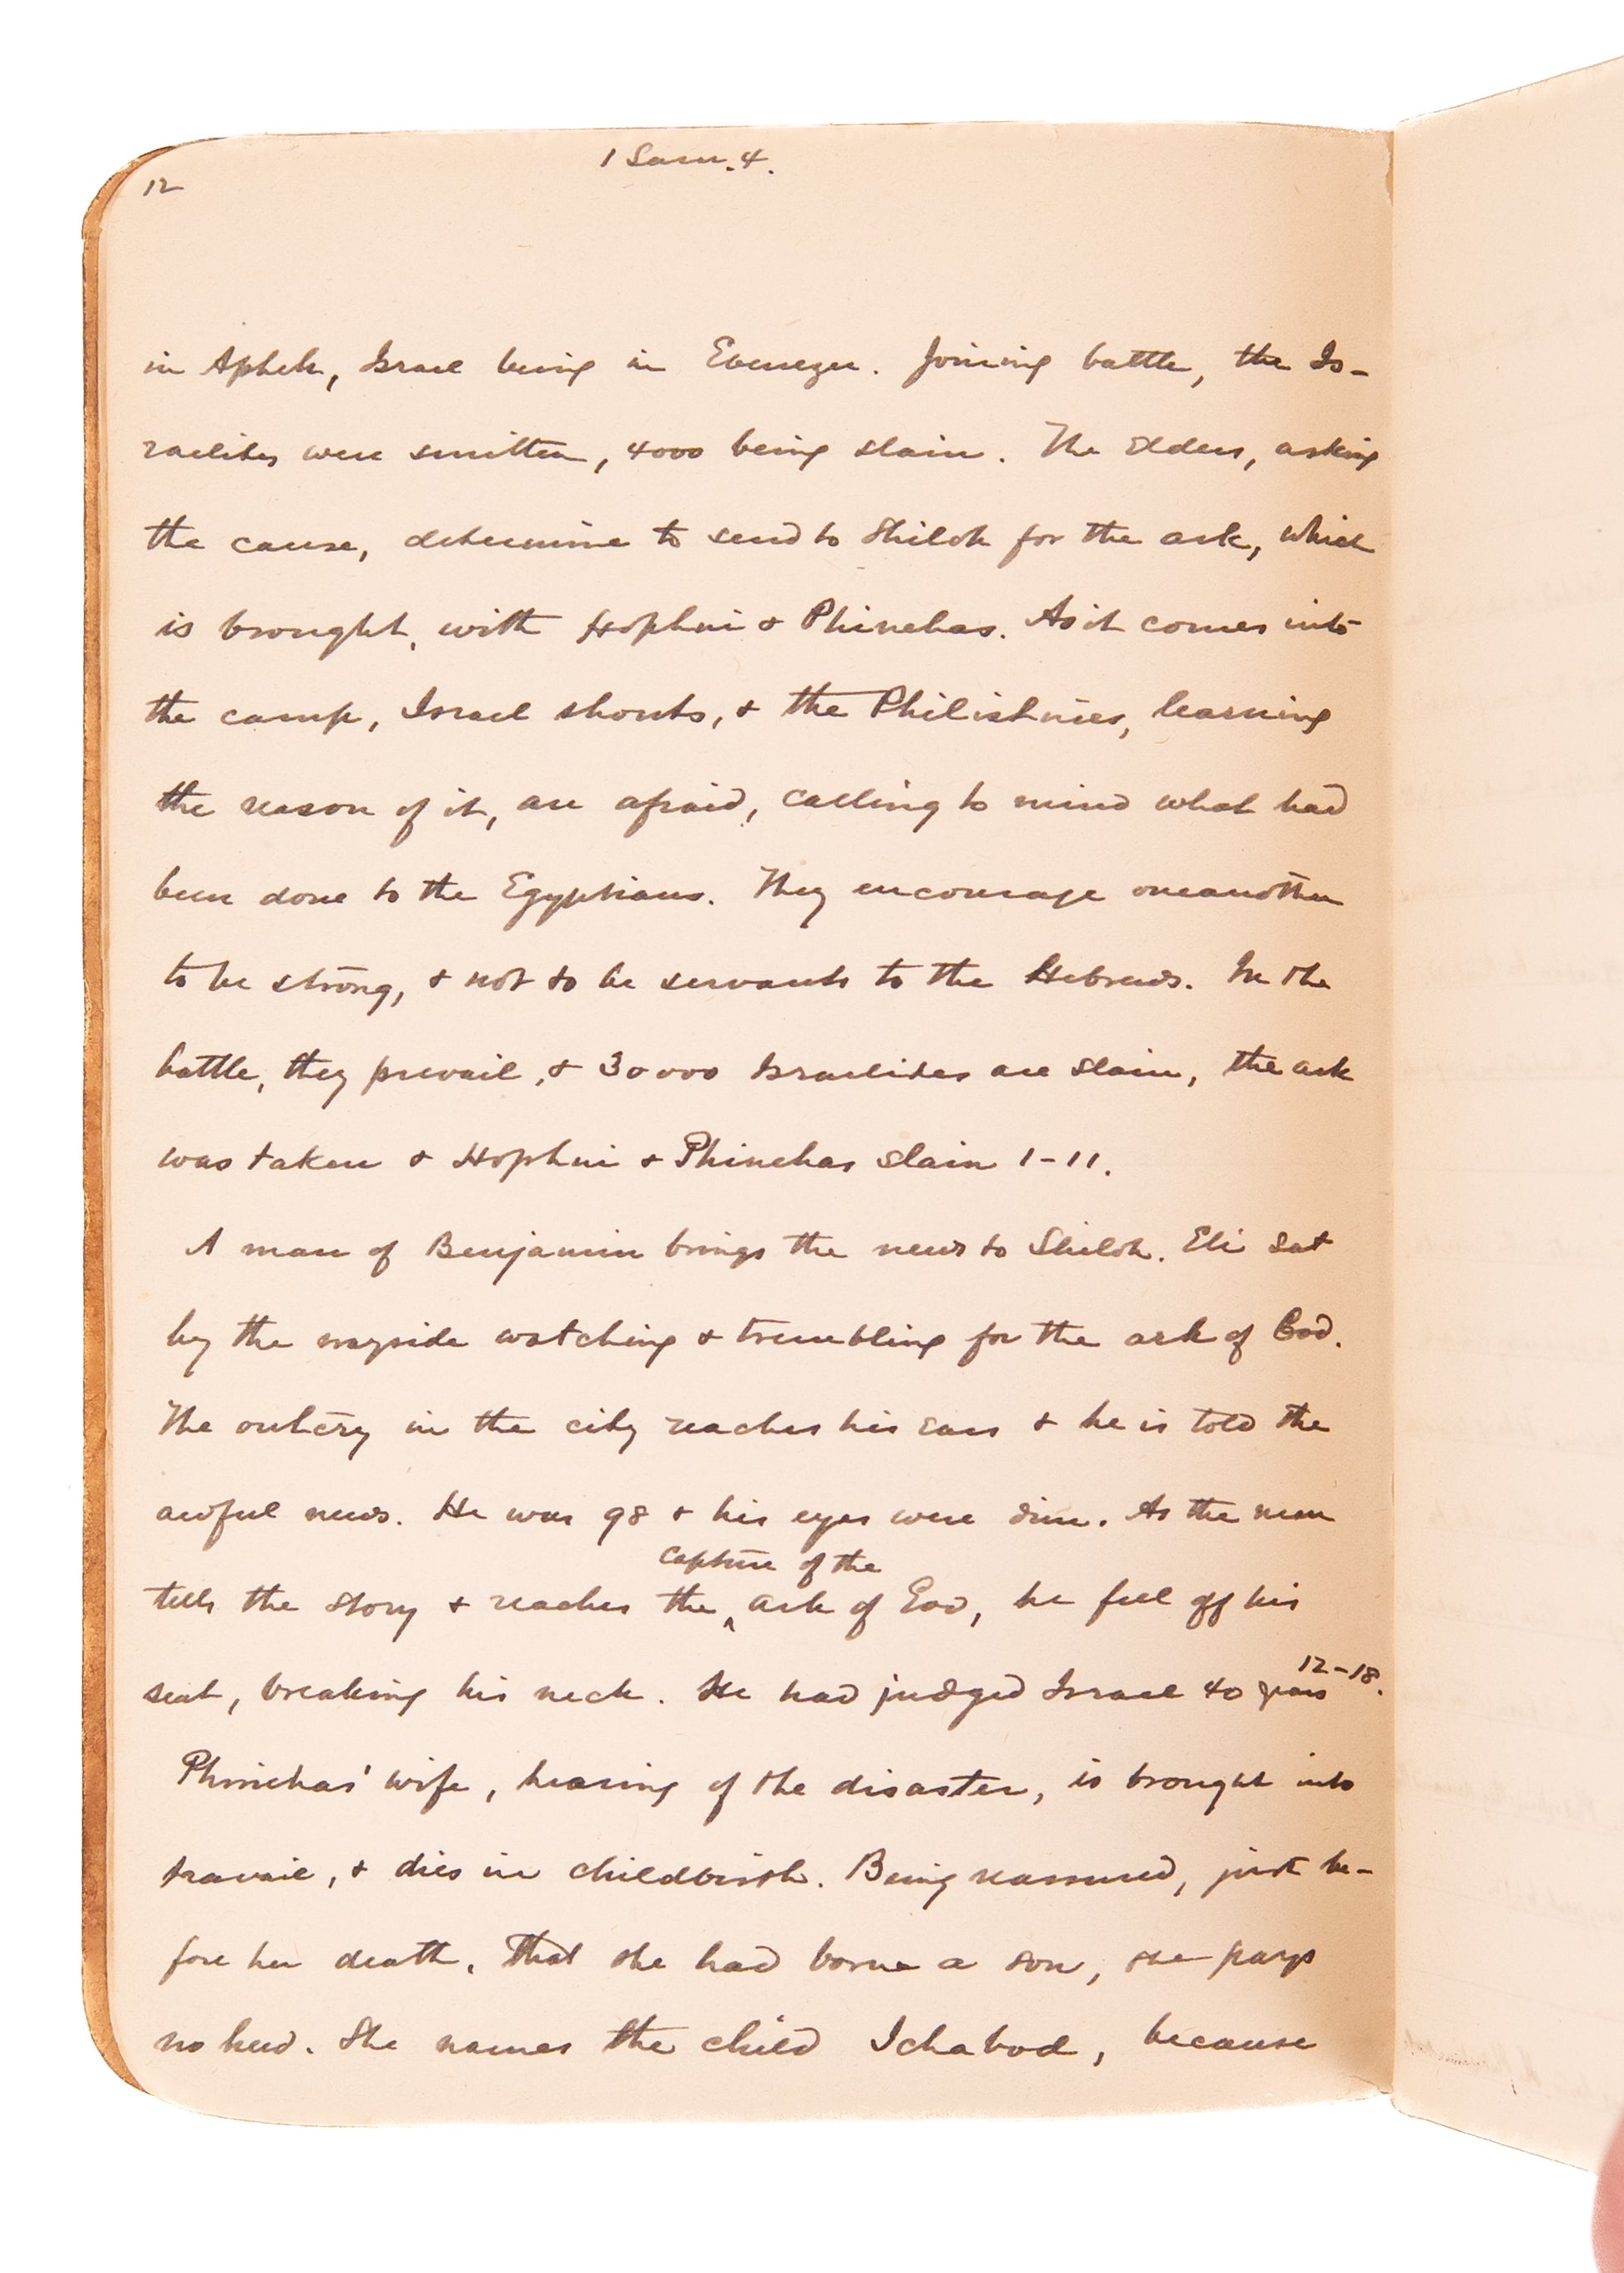 1 Sam. 4.
12
in Aphek, Israel being in Ebenezer. Joining battle, the Is-
raelites were smitten, 4000 being slain. The Elders, asking
the cause, determine to send to Shiloh for the ark, which
is brought, with Hophni & Phinehas. As it comes into
the camp, Israel shouts, & the Philistines, learning
the reason of it, are afraid, calling to mind what had
been done to the Egyptians. They encourage oneanother
to be strong, & not to be servants to the Hebrews. In the
battle, they prevail, & 30000 Israelites are slain, the ark
was taken & Hophni & Phinehas slain 1-11.
A man of Benjamin brings the news to Shiloh. Eli sat
by the wayside watching & trembling for the ark of God.
The outcry in the city reaches his ears & he is told the
awful news. He was 98 & his eyes were dim. As the man
capture of the
tells the story & reaches the ark of God, he fell off his
seat, breaking his neck. He had judged Israel 40 years 12-18.
Phinehas' wife, hearing of the disaster, is brought into
travail, & dies in childbirth. Being reassured, just be-
fore her death, that she had borne a son, she pays
no heed. She names the child Ichabod, because